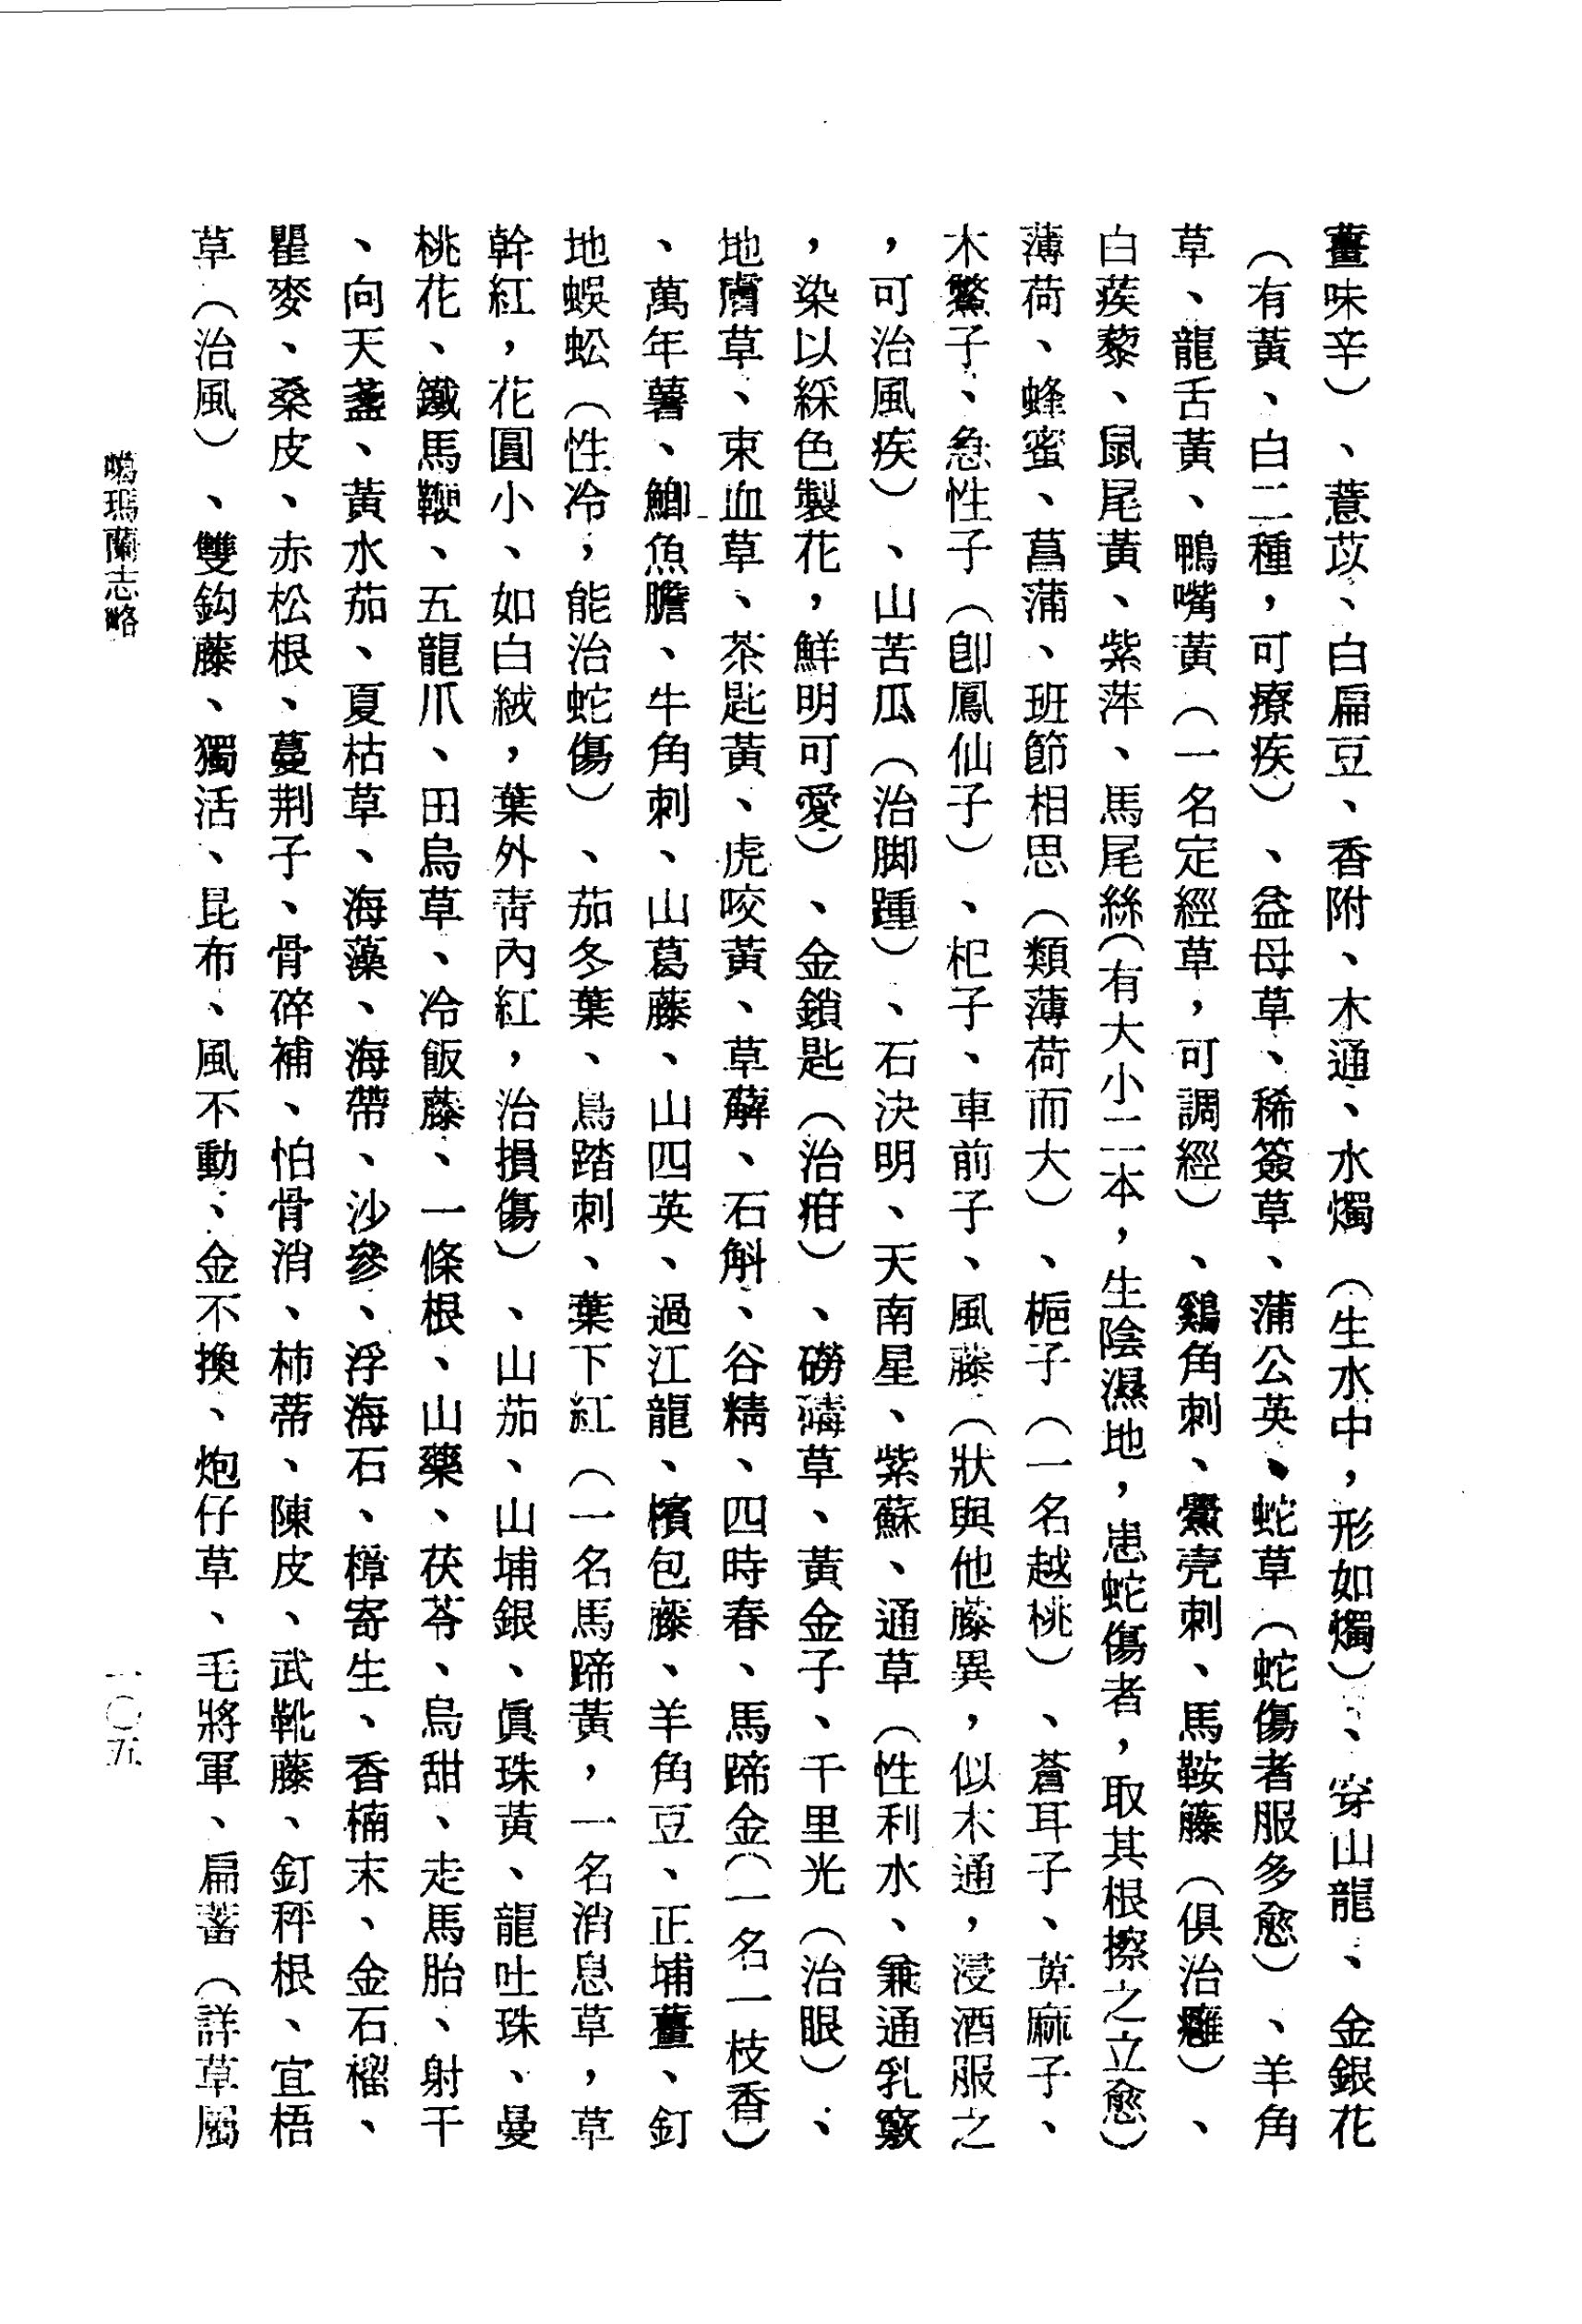 薑味辛）、薏苡、白扁豆、香附、木通、水燭（生水中，形如燭）、穿山龍、金銀花
（有黃、白二種，可療疾）、益母草、稀簽草、蒲公英、蛇草（蛇傷者服多愈）、羊角
草、龍舌黃、鴨嘴黃（一名定經草，可調經）、鷄角刺、鱟壳刺、馬鞍藤（俱治癰）、
白蒺藜、鼠尾黃、紫萍、馬尾絲（有大小二本，生陰濕地，患蛇傷者，取其根擦之立愈）
薄荷、蜂蜜、菖蒲、班節相思（類薄荷而大）、梔子（一名越桃）、蒼耳子、萆麻子、
木鱉子、急性子（卽鳳仙子）、杞子、車前子、風藤（狀與他藤異，似木通，浸酒服之
，可治風疾）、山苦瓜（治脚踵）、石決明、天南星、紫蘇、通草（性利水、兼通乳竅
，染以綵色製花，鮮明可愛）、金鎖匙（治疳）、磅礴草、黃金子、千里光（治眼）、
地膚草、束血草、茶匙黃、虎咬黃、草薢、石斛、谷精、四時春、馬蹄金（一名一枝香）
、萬年薯、鯽魚膽、牛角刺、山葛藤、山四英、過江龍、檳包藤、羊角豆、正埔薑、釘
地蜈蚣（性冷，能治蛇傷）、茄冬葉、鳥踏刺、葉下紅（一名馬蹄黃，一名消息草，草
幹紅，花圓小、如白絨，葉外青內紅，治損傷）、山茄、山埔銀、眞珠黃、龍吐珠、曼
桃花、鐵馬鞭、五龍爪、田烏草、冷飯藤、一條根、山藥、茯苓、烏甜、走馬胎、射干
、向天盞、黃水茄、夏枯草、海藻、海帶、沙參、浮海石、樟寄生、香楠末、金石榴、
瞿麥、桑皮、赤松根、蔓荆子、骨碎補、怕骨消、柿蒂、陳皮、武靴藤、釘秤根、宜梧
草（治風）、雙鈎藤、獨活、昆布、風不動、金不換、炮仔草、毛將軍、扁蓄（詳草屬
噶瑪蘭志略
一〇五